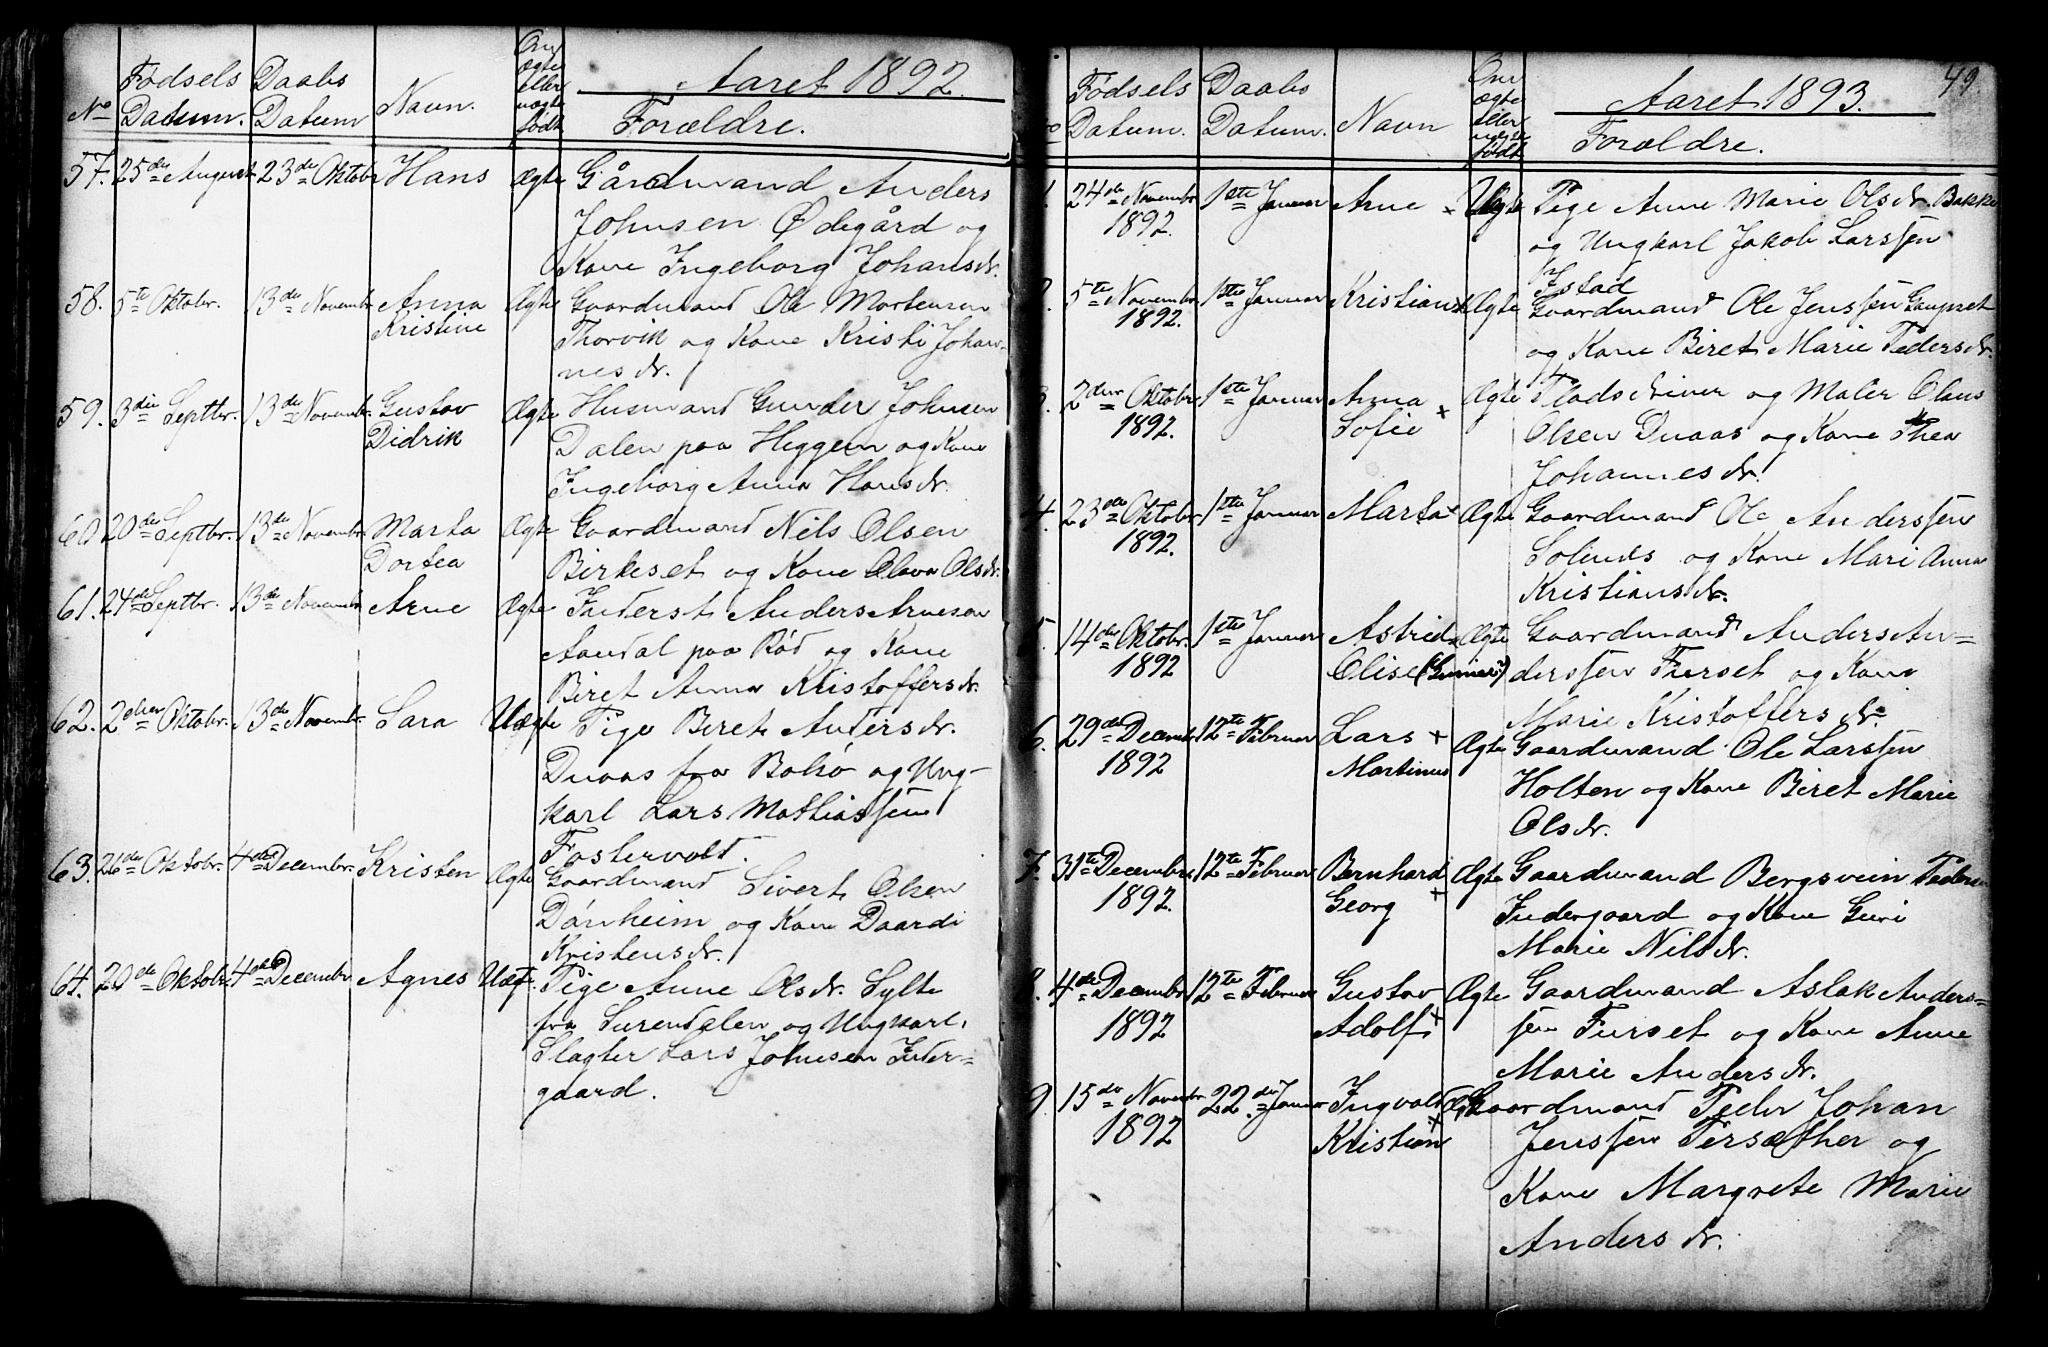 Aaret 1892.
No Fødsels Datum. Daabs Datum Navn. Om Ægte eller uægte født Forældre.
57. 25de August 23de Oktobr Hans Ægte Gårdmand Anders
Johnsen Ødegård og
Kone Ingeborg Johansdr.
58. 5te Oktobr. 13de Novembr Anna Ægte Gaardmand Ole Mortensen
Kristine Thorvik og Kone Kristi Johan-
nesdr.
59. 3die Septbr. 13de Novembr. Gustav Ægte Husmand Gunder Johnsen
Didrik Dalen paa Heggem og Kone
Ingeborg Anna Hansdr.
60 20de Septbr. 13de Novembr. Marta Ægte Gaardmand Nils Olsen
Dortea Birkeset og Kone Olava Olsdr.
61. 24de Septbr. 13de Novembr Arne Ægte Inderst Anders Arneson
Aandal paa Rød og Kone
Biret Anna Kristoffersdr.
62. 2den Oktobr. 13de Novembr. Sara Uægte Pige Beret Andersdr.
Duaas fra Bolsø og Ung-
karl Lars Mathiassen
Fostervolt.
63. 26de Oktobr. 4de Decembr. Kristen Ægte Gaardmand Sivert Olsen
Dónheim og Kone Daardi
Kristensdr.
64. 20de Oktobr. 4de Decembr Agnes Uæg. Pige Anne Olsdr. Sylte
fra Surendalen og Ungkarl,
Slagter Lars Johnsen Inder-
gaard.
49.
Aaret 1893.
Fødsels Datum. Daabs Datum. Navn Om ægte eller uægte født Forældre.
1. 24de Novembr 1ste Januar Arne x Uægte Pige Anne Marie Olsdr. Bakke
1892. og Ungkarl Jakob Larssen
Istad
2. 5te Novembr 1ste Januar Kristian x Ægte Gaardmand Ole Jenssen Gaupset
1892. og Kone Biret Marie Pedersdr.
3. 2den Oktobr 1ste Januar Anna x Ægte Pladsdriver og Maler Olaus
1892. Sofie Olsen Duaas og Kone Thea
Johannesdr.
4. 23de Oktobr 1ste Januar Marta x Ægte Gaardmand Ole Anderssen
1892. Solnes og Kone Mari Anna
Kristiansdr.
5. 14de Oktobr. 1ste Januar Astrid x Ægte Gaardmand Anders An-
1892 Olise derssen Furset og Kone
Marie Kristoffersdr.
6. 29de Decembr 12te Februar Lars x Ægte Gaardmand Ole Larssen
1892 Martinus Holten og Kone Biret Marie
Olsdr.
7. 31te Decembr 12te Februar Bernhard x Ægte Gaardmand Bergsvein Peders
1892. Georg Indergaard og Kone Guri
Marie Nilsdr.
8. 4de Decembr 12te Februar Gustav Ægte Gaardmand Aslak Anders-
1892 Adolf x sen Furset og Kone Anne
Marie Andersdr.
9. 15de Novembr 22de Januar Ingvald x Ægte Gaardmand Peder Johan
1892 Kristian Jenssen Persæther og
Kone Margrete Marie
Andersdr.